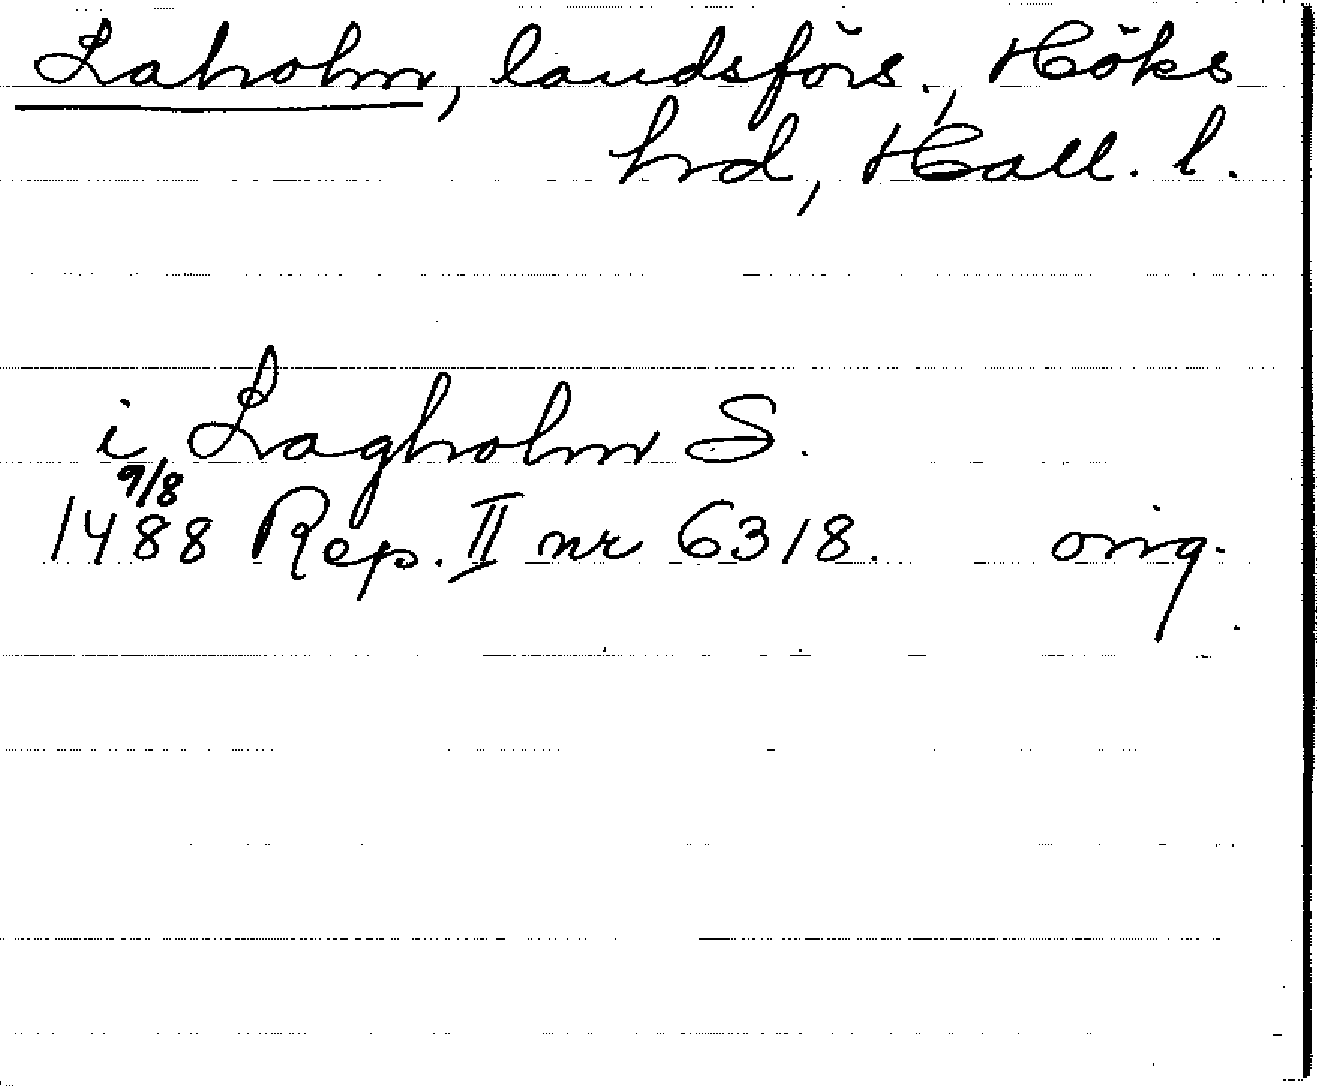 Laholm, landsförs., Höks
hrd, Hall. l.
i Lagholm S.
9/8
1488 Rep. II nr 6318. orig.